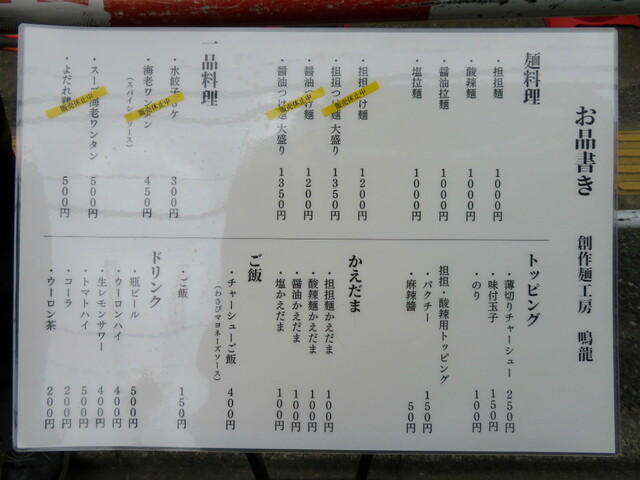 お品書き 創作麺工房 鳴龍
麺料理
・担担麺 1000円
・酸辣麺 1000円
・醤油拉麺 1000円
・塩拉麺 1000円
・担担つけ麺 1200円
販売休止中
・担担つけ麺 大盛り 1350円
・醤油つけ麺 1200円
販売休止中
・醤油つけ麺 大盛り 1350円
一品料理
・水餃子 ケ 300円
・海老ワンタン 450円
(スパイシーソース)
販売休止中
・スープ海老ワンタン 500円
・よだれ鶏 500円
販売休止中
トッピング
・薄切りチャーシュー 250円
・味付玉子 150円
・のり 100円
担担・酸辣用トッピング
・パクチー 150円
・麻辣醬 50円
かえだま
・担担麺かえだま 100円
・酸辣麺かえだま 100円
・醤油かえだま 100円
・塩かえだま 100円
ご飯
・チャーシューご飯 400円
(わさびマヨネーズソース)
・ご飯 150円
ドリンク
・瓶ビール 500円
・ウーロンハイ 400円
・生レモンサワー 400円
・トマトハイ 500円
・コーラ 200円
・ウーロン茶 200円